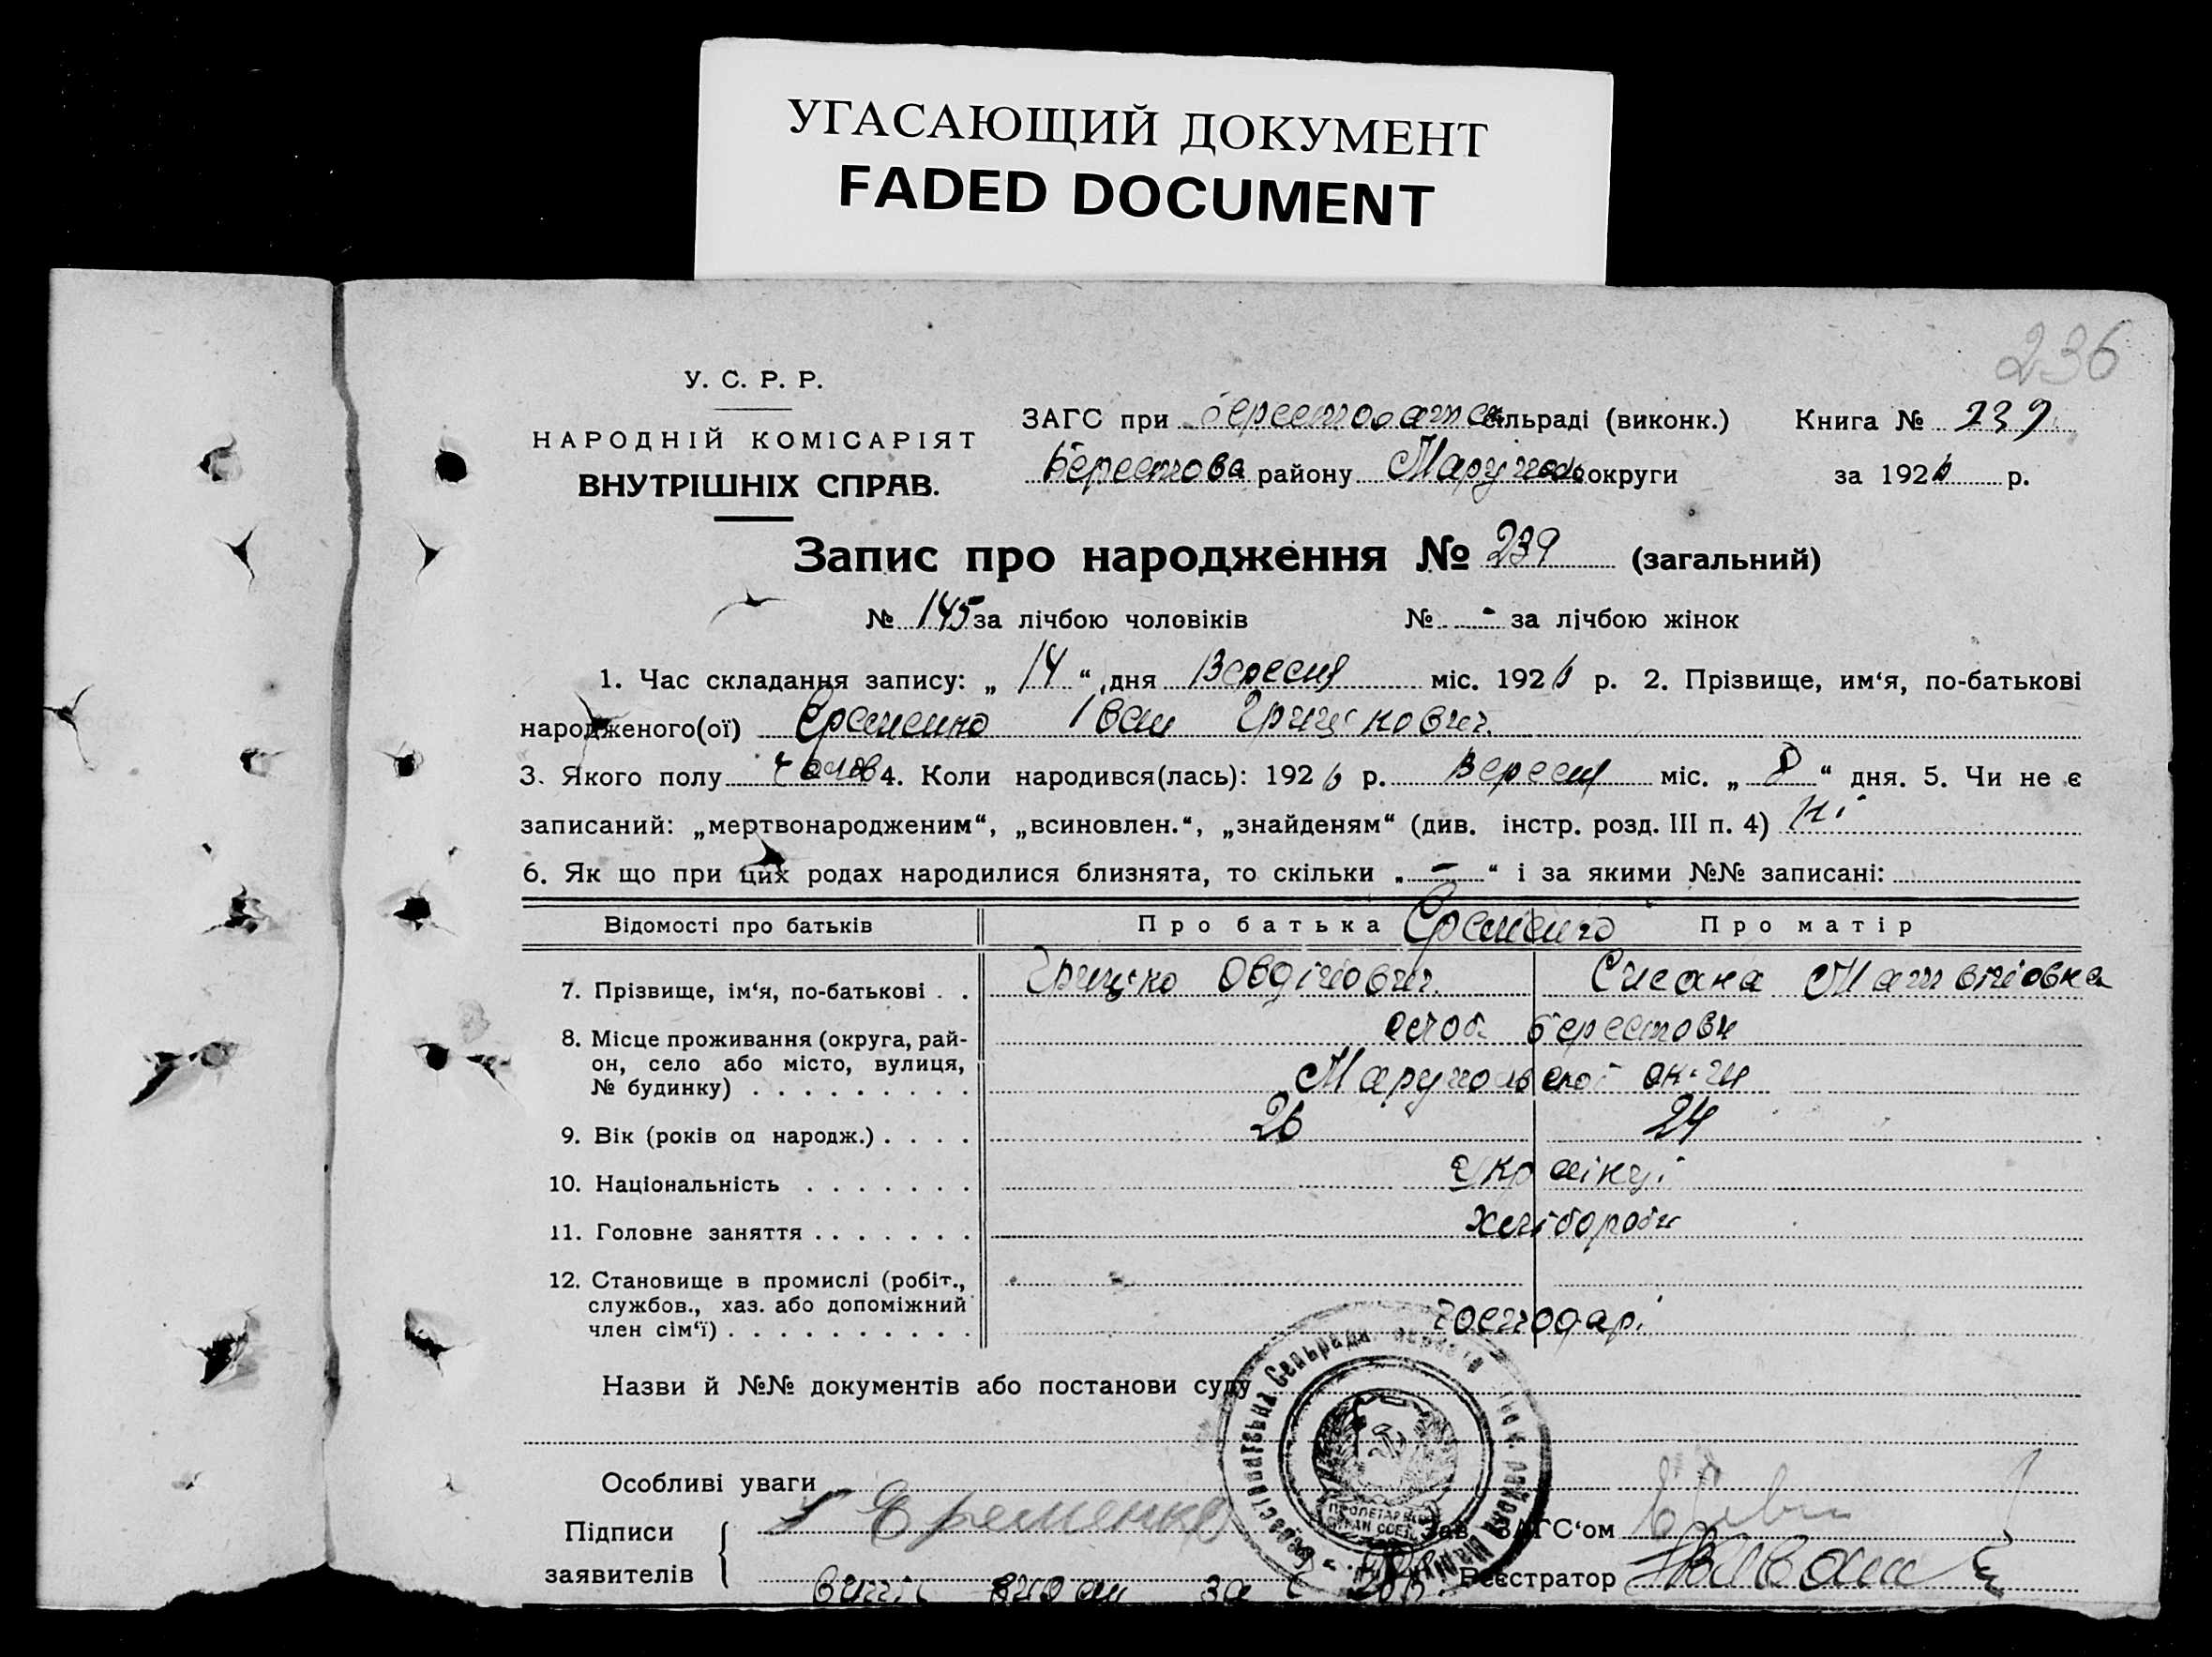 УГАСАЮЩИЙ ДОКУМЕНТ
FADED DOCUMENT
236
У. С. Р. Р.
НАРОДНІЙ КОМІСАРІЯТ
ВНУТРІШНІХ СПРАВ.
ЗАГС при сільраді (виконк.) Книга № 239
Берестова району Маруполь округи за 1926 р.
Запис про народження № 239 (загальний)
№ 145 за лічбою чоловіків № - за лічбою жінок
1. Час складання запису: „ 14 “ дня Вересня міс. 1926 р. 2. Прізвище, им‘я, по-батькові
народженого(ої) Єременко Іван Грицькович.
3. Якого полу чолов 4. Коли народився(лась): 1926 р. Вересня міс. „ 8 “ дня. 5. Чи не є
записаний: „мертвонародженим“, „всиновлен.“, „знайденям“ (див. інстр. розд. III п. 4) Ні
6. Як що при цих родах народилися близнята, то скільки „ - “ і за якими №№ записані:
Відомості про батьків Про батька Єременко Про матір
7. Прізвище, ім‘я, по-батькові . . Грицько Овдійович. Матвійовна
8. Місце проживання (округа, рай- Берестови
он, село або місто, вулиця, Марупольскої ок-ги
№ будинку) . . . . . . . . .
9. Вік (років од народж.) . . . . 26 24
10. Національність . . . . . . . українці
11. Головне заняття . . . . . . . хлібороби
12. Становище в промислі (робіт.,
службов., хаз. або допоміжний господарі
член сім‘ї) . . . . . . . . . .
Назви й №№ документів або постанови суду
Особливі уваги
Підписи Еременко Зав. ЗАГС‘ом
заявителів Реєстратор